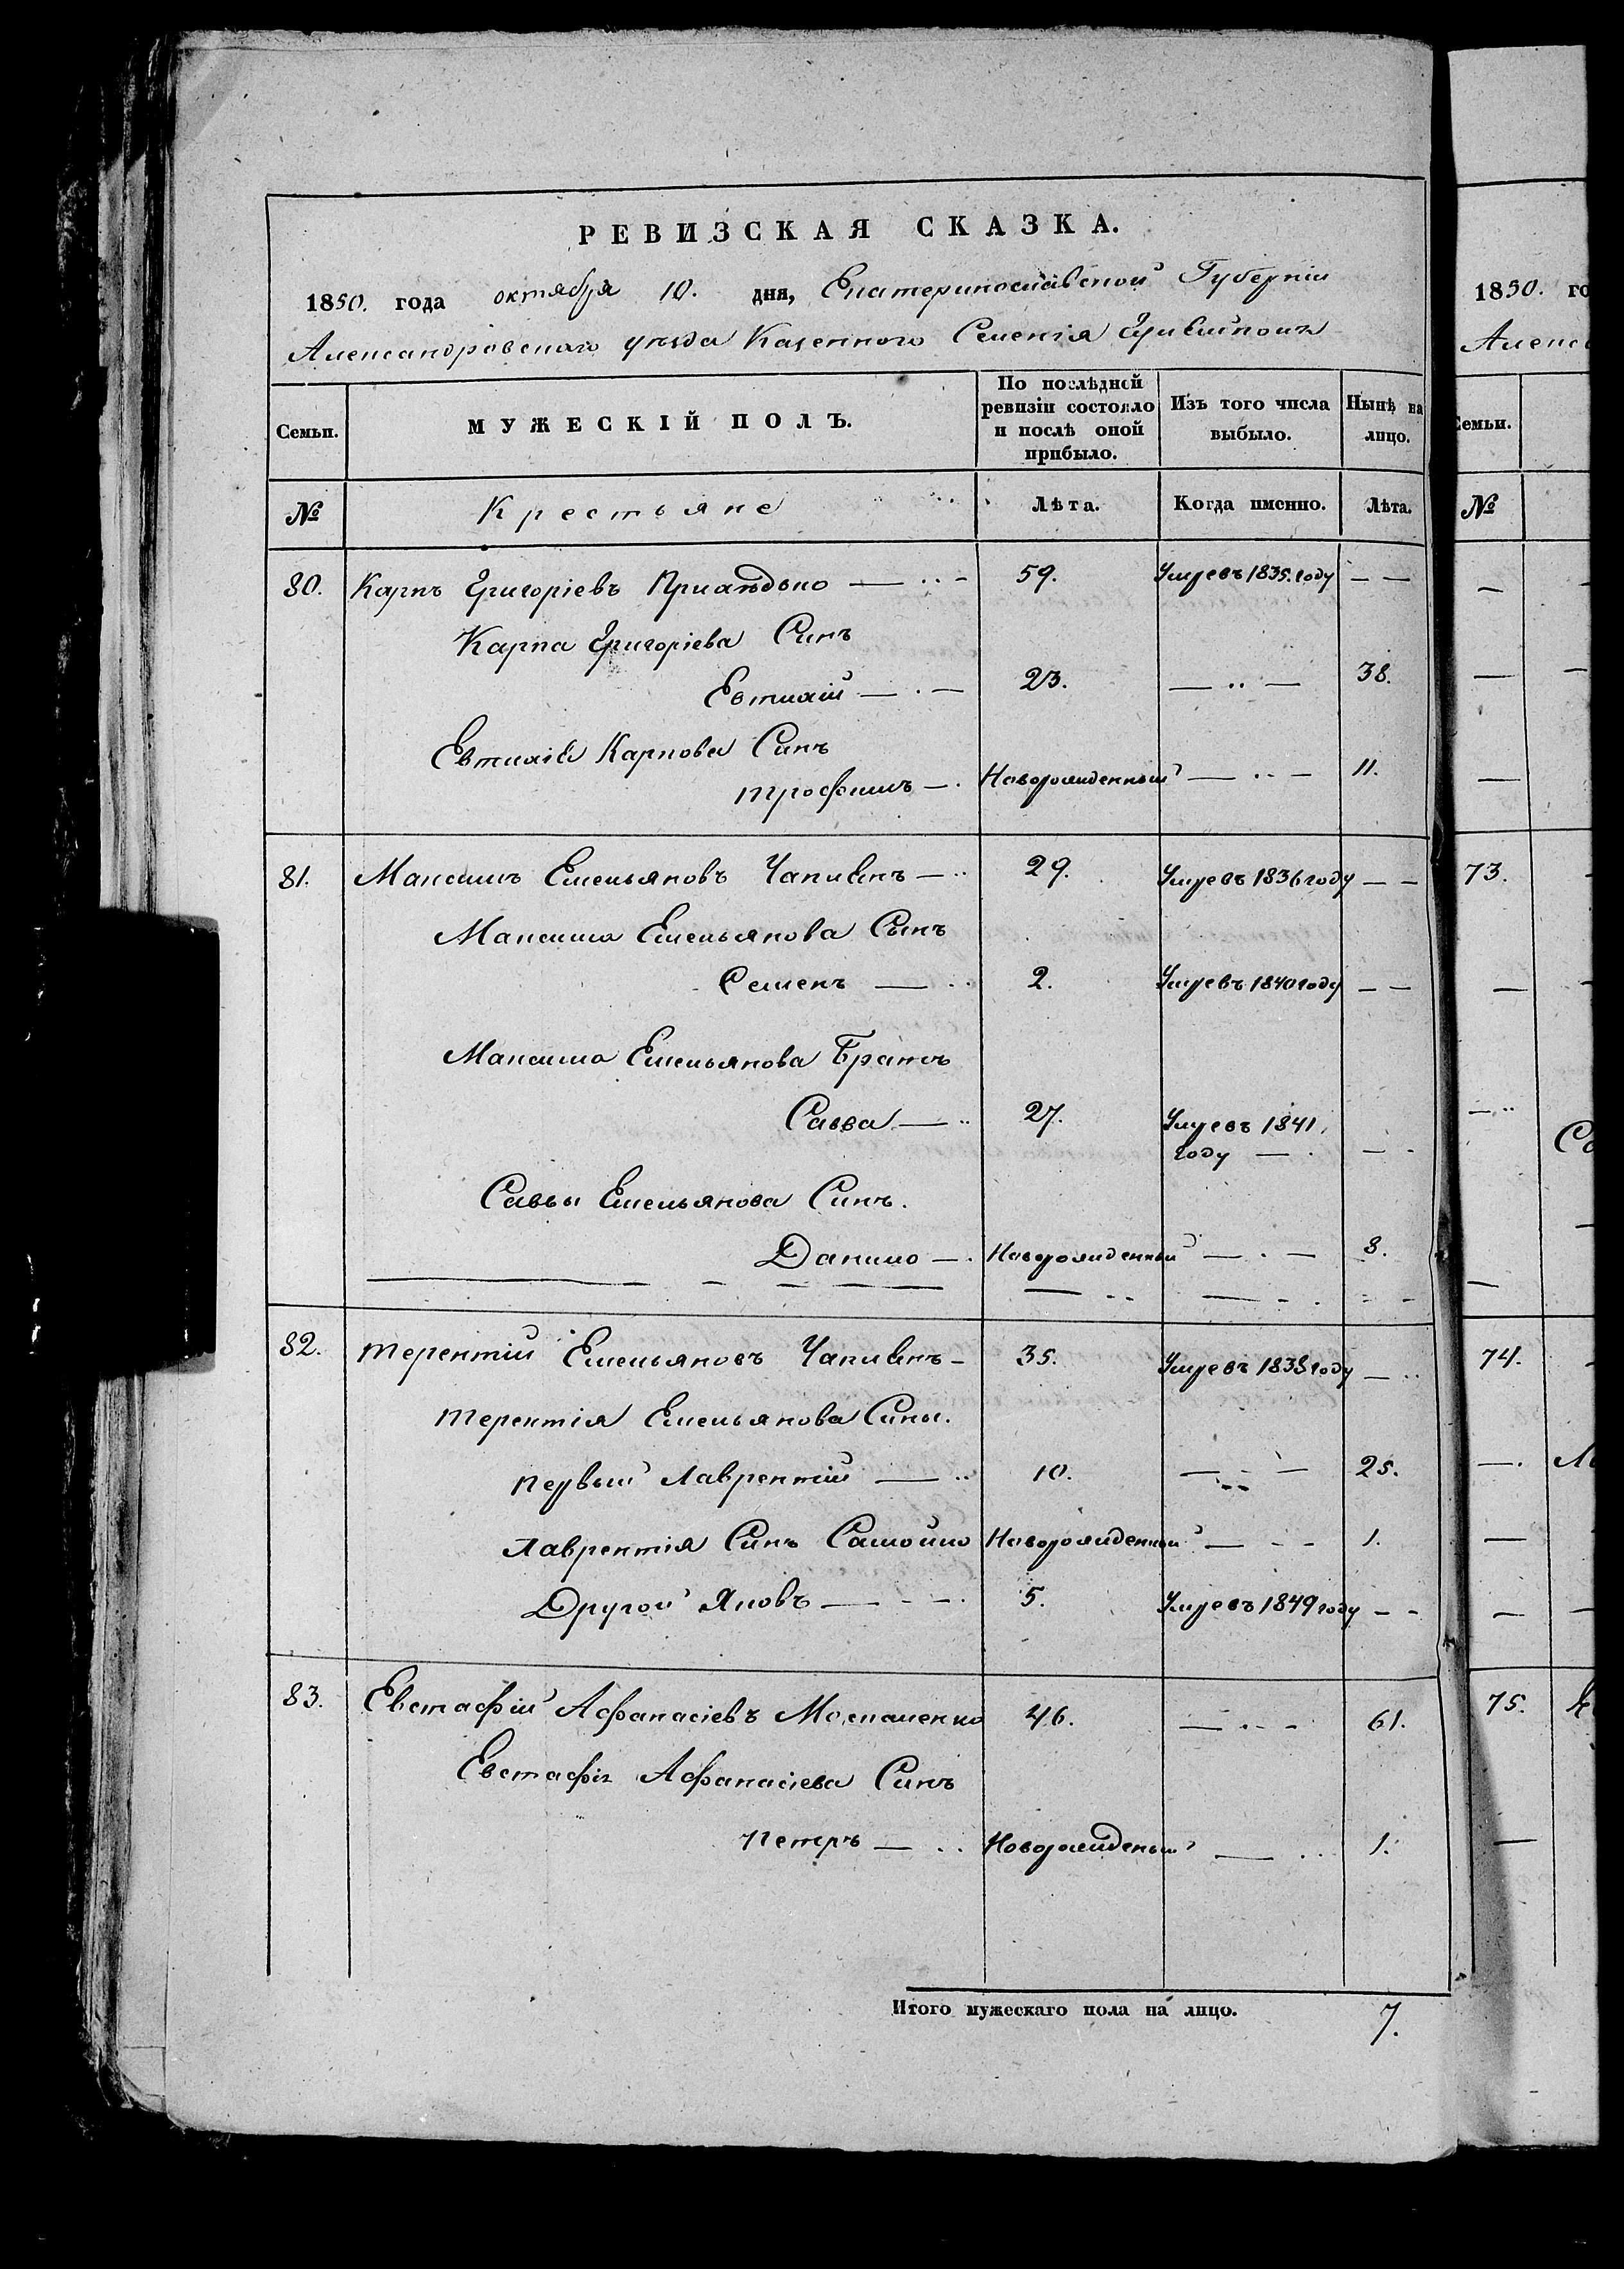 РЕВИЗСКАЯ СКАЗКА.
1850. года октября 10. дня, Екатеринославской Губерніи
Александровскаго уѣзда Казенного Селенія
Семьи. МУЖЕСКІЙ ПОЛЪ. По послѣдней ревизіи состояло и послѣ оной прибыло. Изъ того числа выбыло. Нынѣ на лицо.
№ Крестьяне Лѣта. Когда именно. Лѣта.
80. Карпъ Григоріевъ 59. Умревъ 1835. году — —
Карпа Григоріева Синъ
Евтихій — . — 23. — .. — 38.
Евтихія Карпова Синъ
Трофимъ — . Новорожденный — .. — 11.
81. Максимъ Емельяновъ — .. 29. Умревъ 1836 году — —
Максима Емельянова Сынъ
Семенъ — .. 2. Умревъ 1840 году — —
Максима Емельянова Братъ
Савва — .. 27. Умревъ 1841
году — . — -
Саввы Емельянова Синъ.
Данило — . Новорожденный — . — 8.
82. Терентій Емельяновъ — 35. Умревъ 1838 году — ..
Терентія Емельянова Сины.
Первый Лаврентій — .. 10. — - — 25.
Лаврентія Синъ Самойло Новорожденный — - - 1.
Другой Яковъ — - - . 5. Умревъ 1849 году - -
83. Евстафій Афанасіевъ Москаленко 46. — . - - 61.
Евстафія Афанасіева Синъ
Петръ — .. Новорожденый — ... 1.
Итого мужескаго пола на лицо. 7.
1850. го
Алекс
Семьи.
№
73.
74.
75.